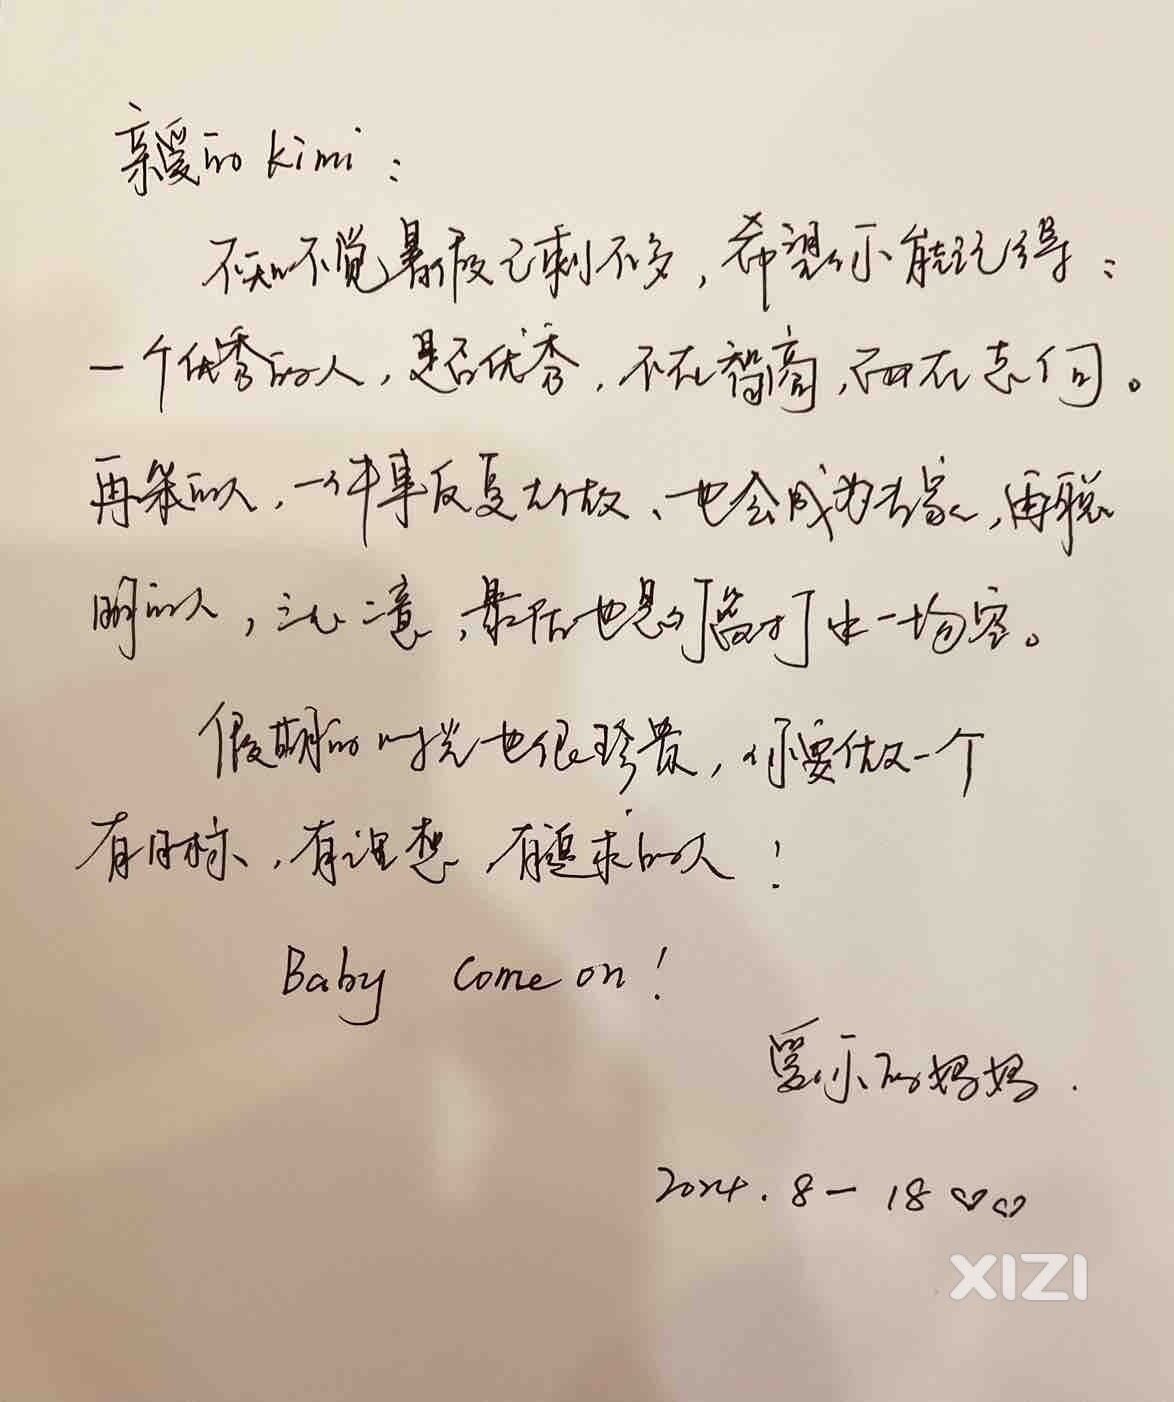 亲爱的kimi：
不知不觉暑假已剩不多，希望你能记得：
一个优秀的人，是否优秀，不在智商，而在志向。
再笨的人，一件事反复去做、也会成为专家，再聪
明的人，三心二意，最后也是竹篮打水一场空。
假期的时光也很珍贵，你要做一个
有目标、有理想、有追求的人！
Baby Come on！
爱你的妈妈.
2024.8-18
XIZI